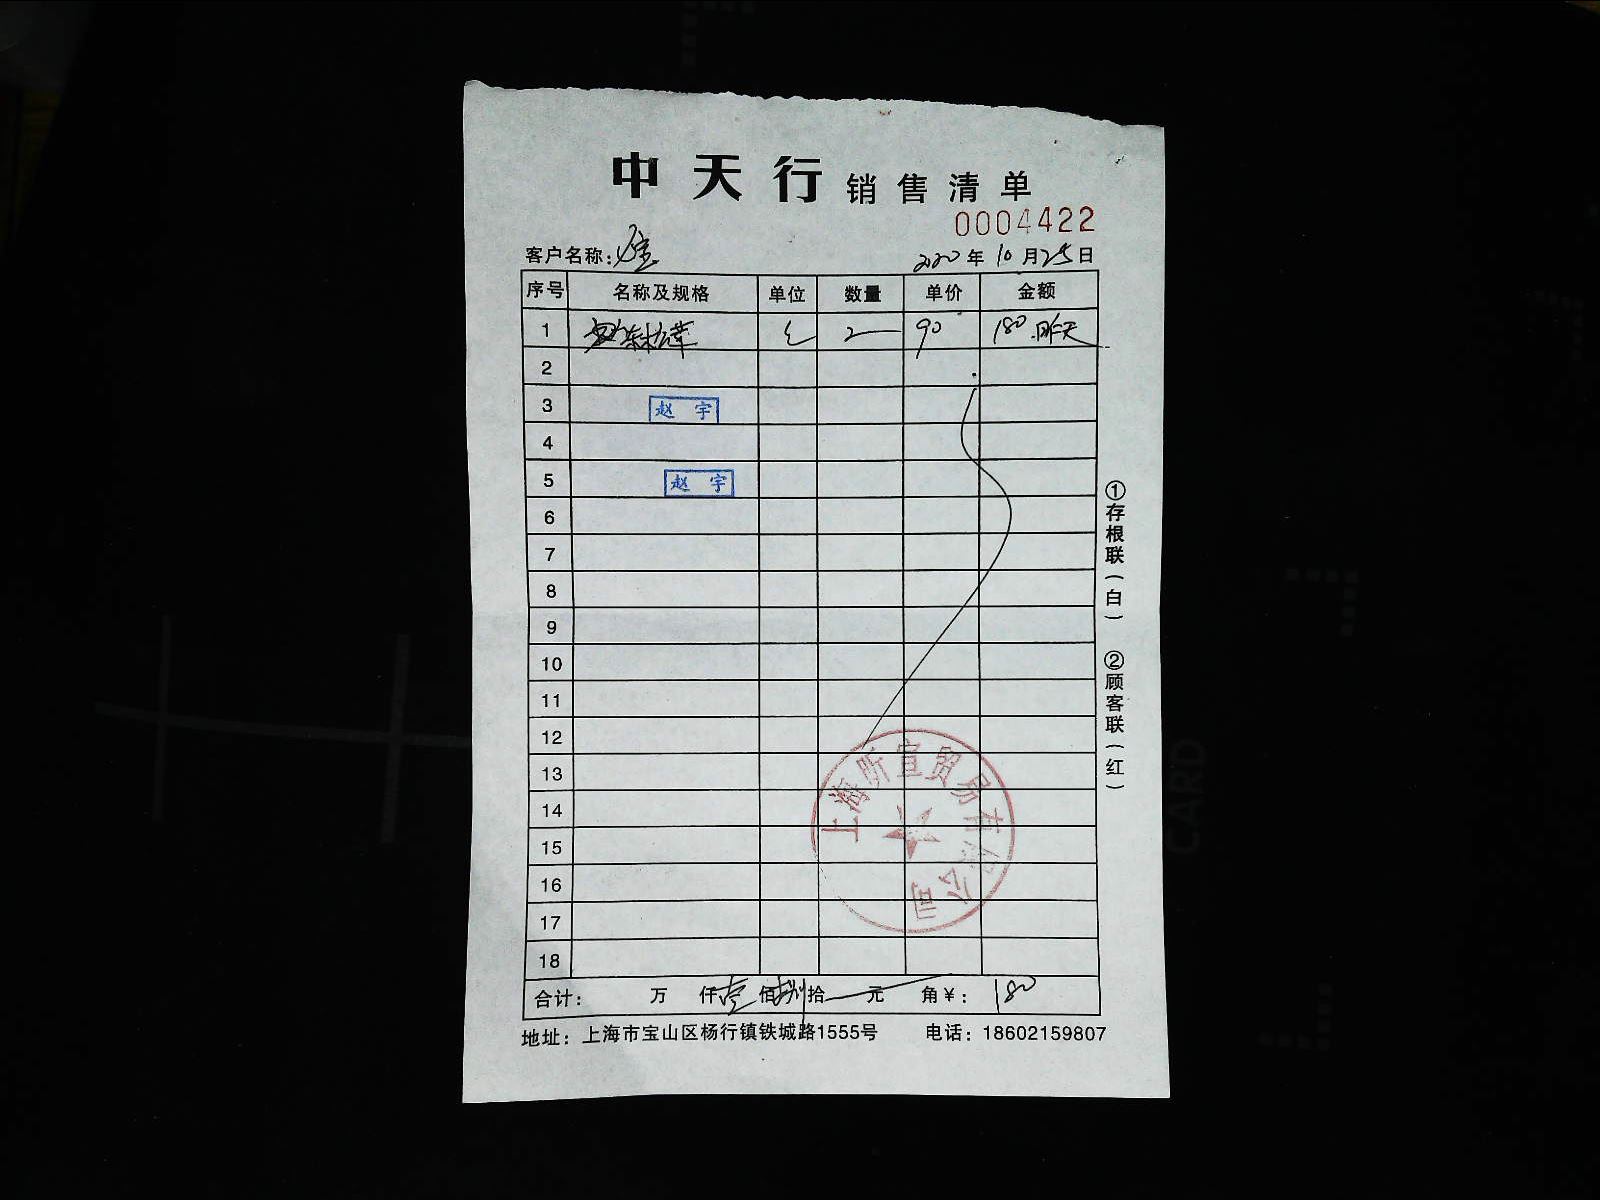 中天行 销售清单
0004422
客户名称:
2020年10月25日
序号 名称及规格 单位 数量 单价 金额
1 2 90 180 昨天
2
3 赵宇
4
5 赵宇
6
7
8
9
10
11
12
13
14
15
16
17
18
上海昕宣贸易有限公司
合计: 万 仟壹佰捌拾 元 角¥: 180
地址: 上海市宝山区杨行镇铁城路1555号 电话: 18602159807
①存根联(白) ②顾客联(红)
CARD